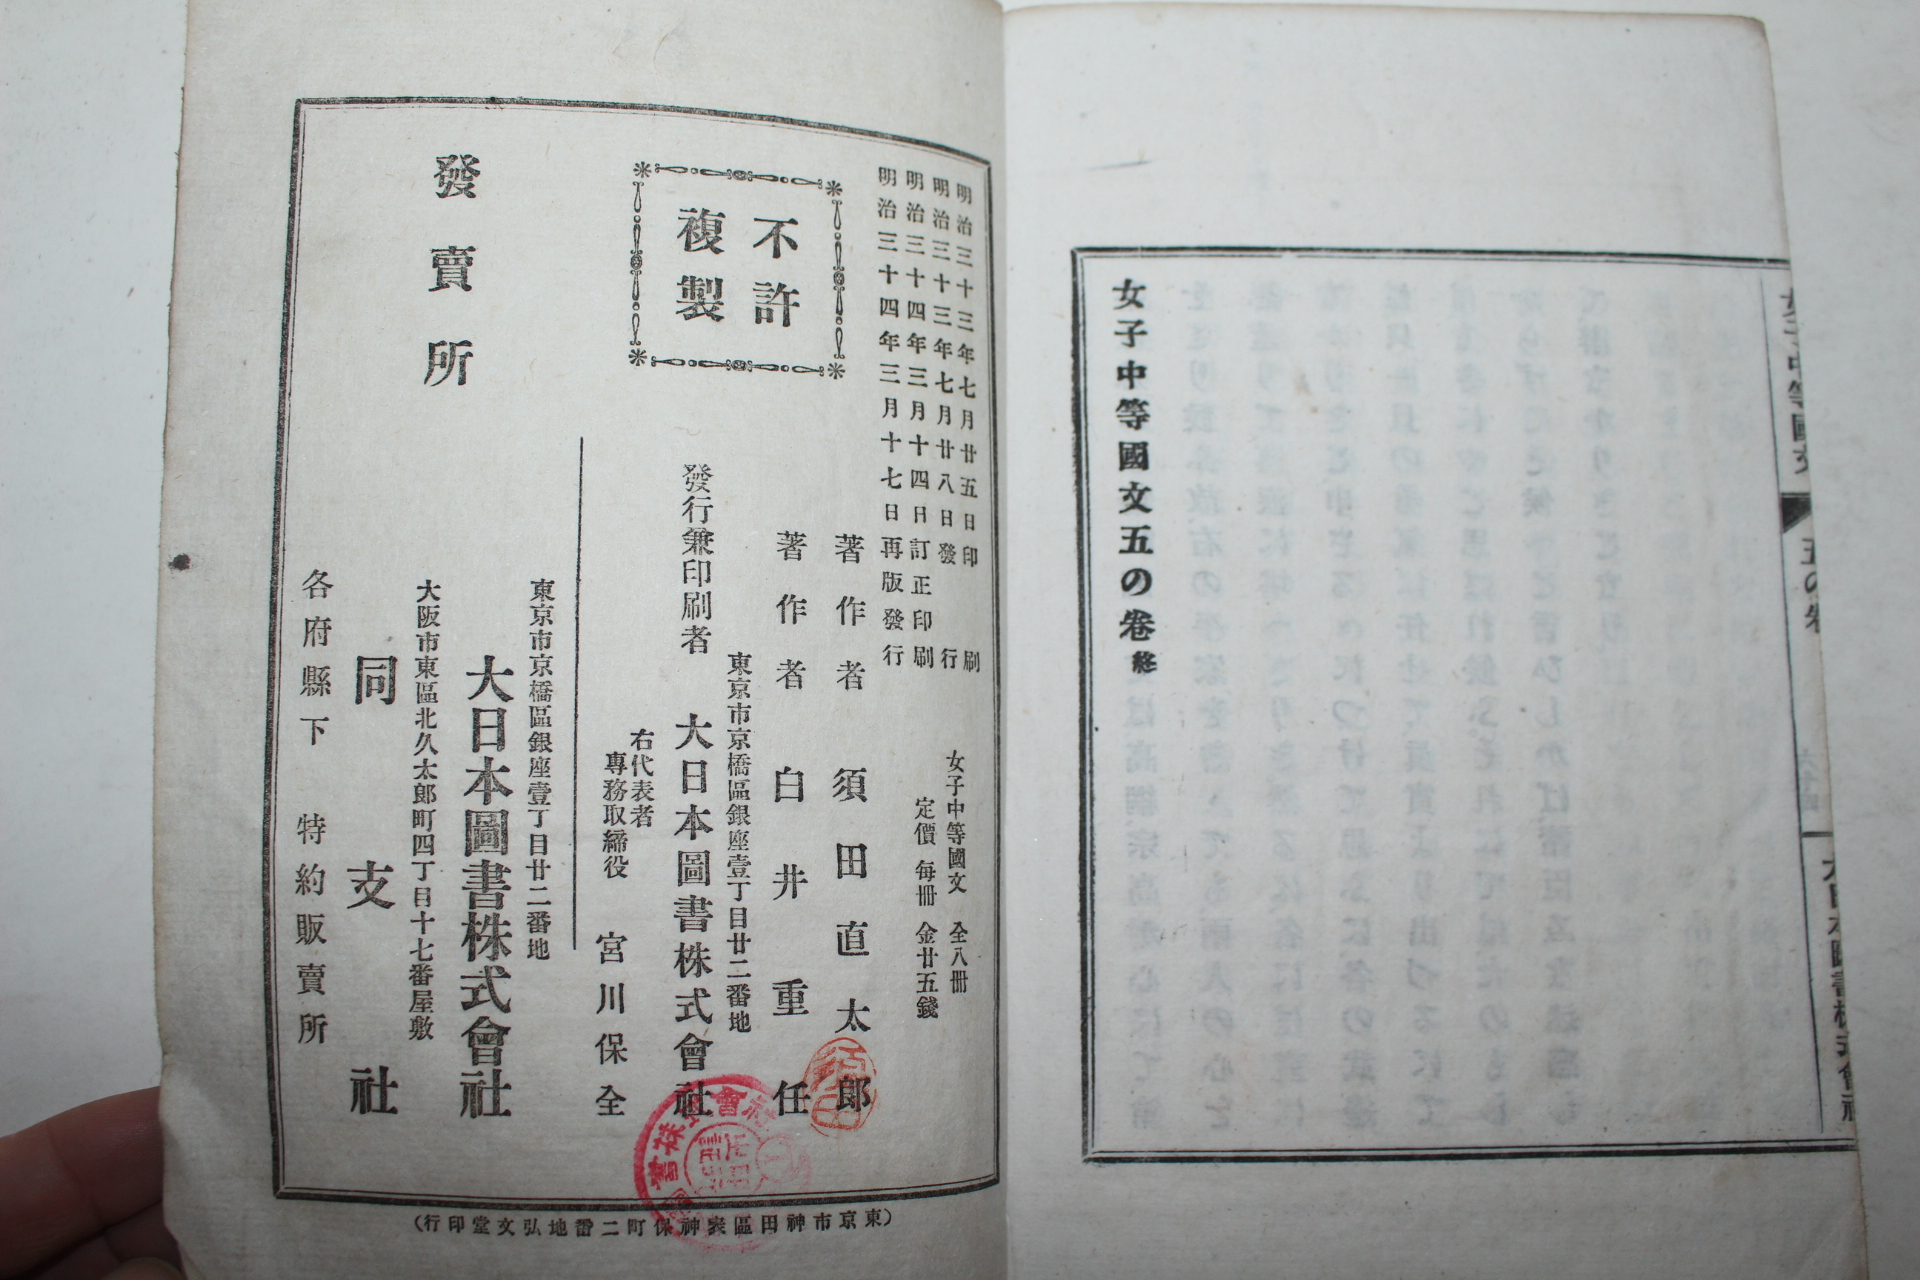 女子中等國文
五の卷
六十四
大日本圖書株式會社
女子中等國文五の卷 終
明治三十三年七月廿五日印刷
明治三十三年七月廿八日發行
明治三十四年三月十四日訂正印刷
明治三十四年三月十七日再版發行
女子中等國文 全八冊
定價 每冊 金廿五錢
不許
複製
著作者 須田直太郎
著作者 白井重任
東京市京橋區銀座壹丁目廿二番地
發行兼印刷者 大日本圖書株式會社
右代表者
專務取締役 宮川保全
發賣所
東京市京橋區銀座壹丁目廿二番地
大日本圖書株式會社
大阪市東區北久太郎町四丁目十七番屋敷
同支社
各府縣下 特約販賣所
(東京市神田區表神保町二番地弘文堂印行)
須田